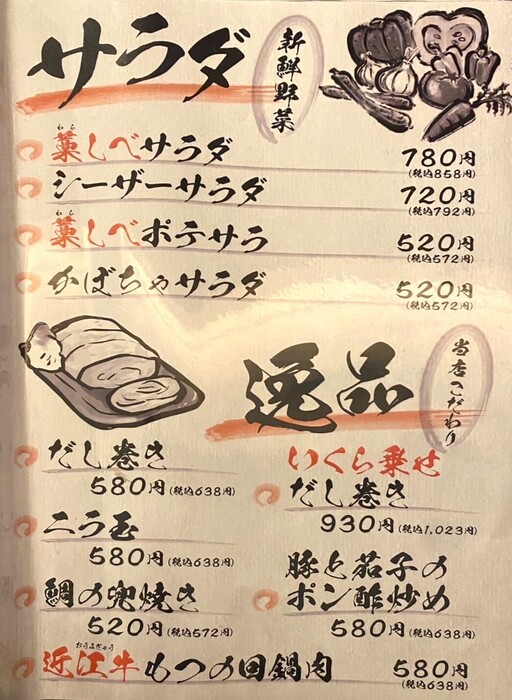 サラダ
新鮮野菜
わら
藁しべサラダ
780円
(税込858円)
シーザーサラダ
720円
(税込792円)
わら
藁しべポテサラ
520円
(税込572円)
かぼちゃサラダ
520円
(税込572円)
逸品
当店こだわり
だし巻き
580円(税込638円)
いくら乗せ
だし巻き
930円(税込1,023円)
ニラ玉
580円(税込638円)
豚と茄子の
ポン酢炒め
580円(税込638円)
鯛の兜焼き
520円(税込572円)
おうみぎゅう
近江牛もつの回鍋肉
580円
(税込638円)